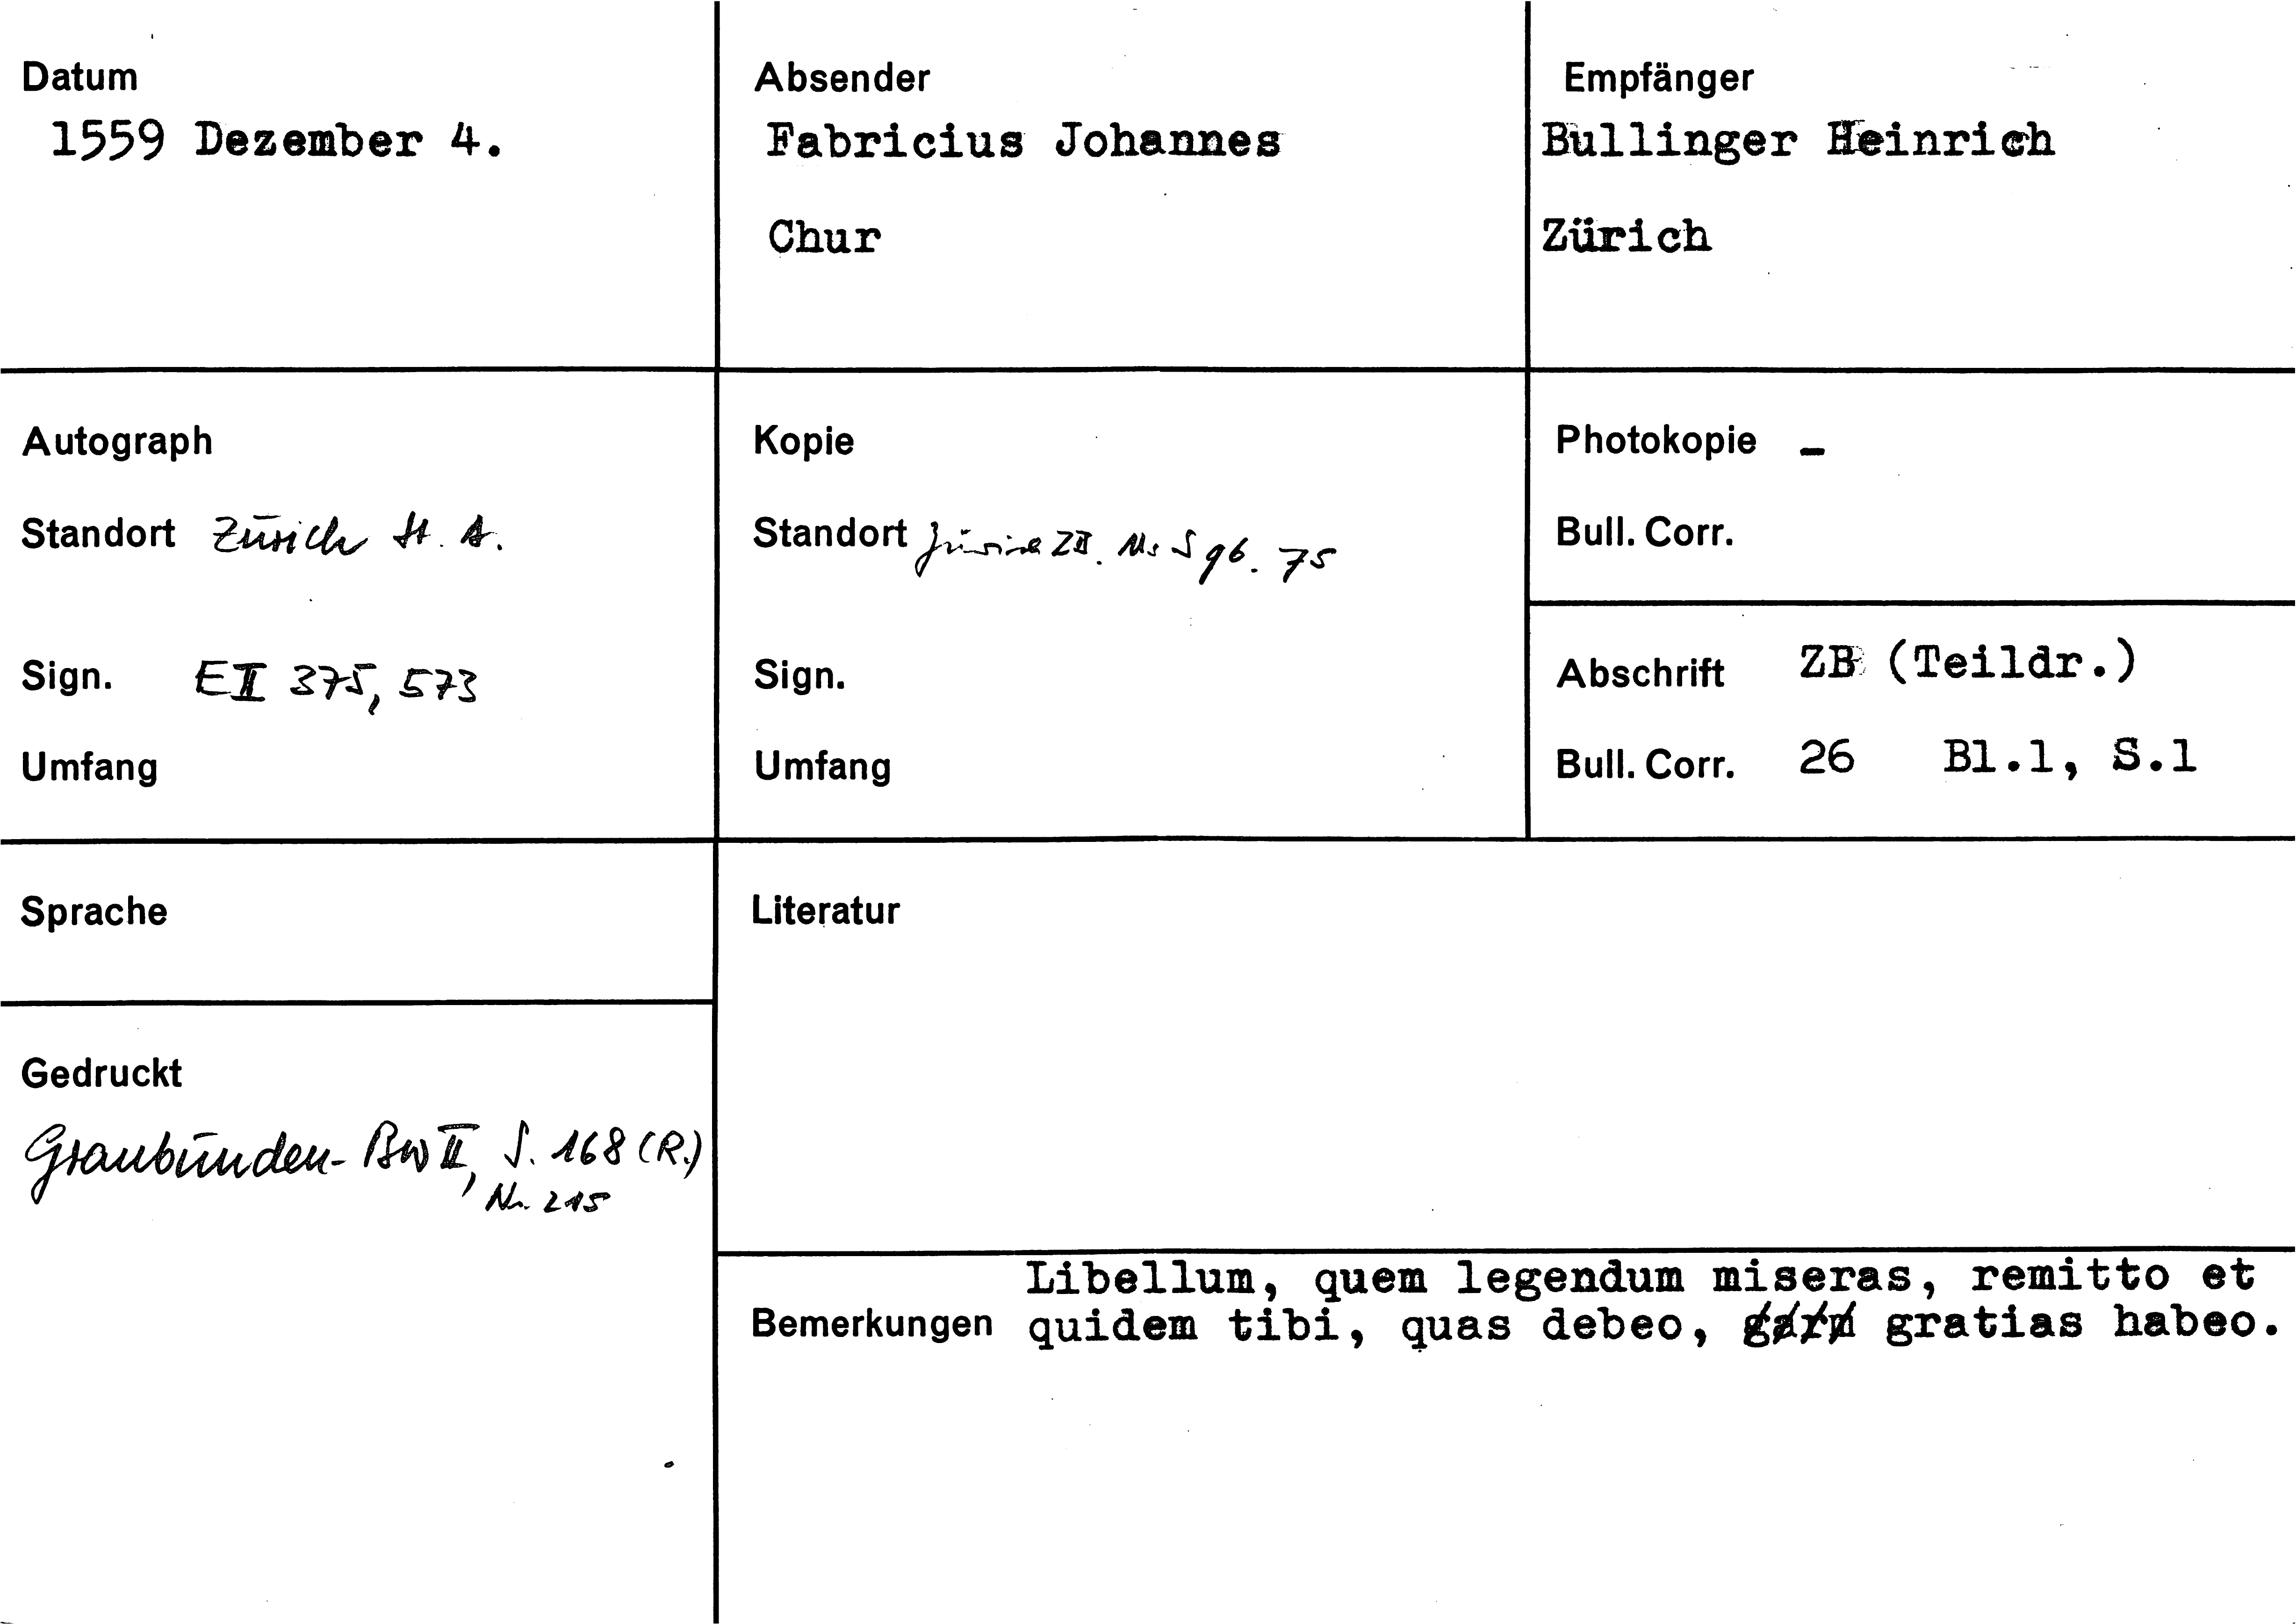 Datum
1559 Dezember 4.
Absender
Fabricius Johannes
Chur
Empfänger
Bullinger Heinrich
Zürich
Autograph
Standort Zürich St. A.
Sign. E II 375, 573
Umfang
Kopie
Standort Zürich ZB. Ms S 96. 75
Sign.
Umfang
Photokopie -
Bull. Corr.
Abschrift ZB (Teildr.)
Bull. Corr. 26 Bl.1, S.1
Sprache
Literatur
Gedruckt
Graubünden-BW II, S. 168 (R.)
Nr. 215
Libellum, quem legendum miseras, remitto et
Bemerkungen quidem tibi, quas debeo, gratias habeo.